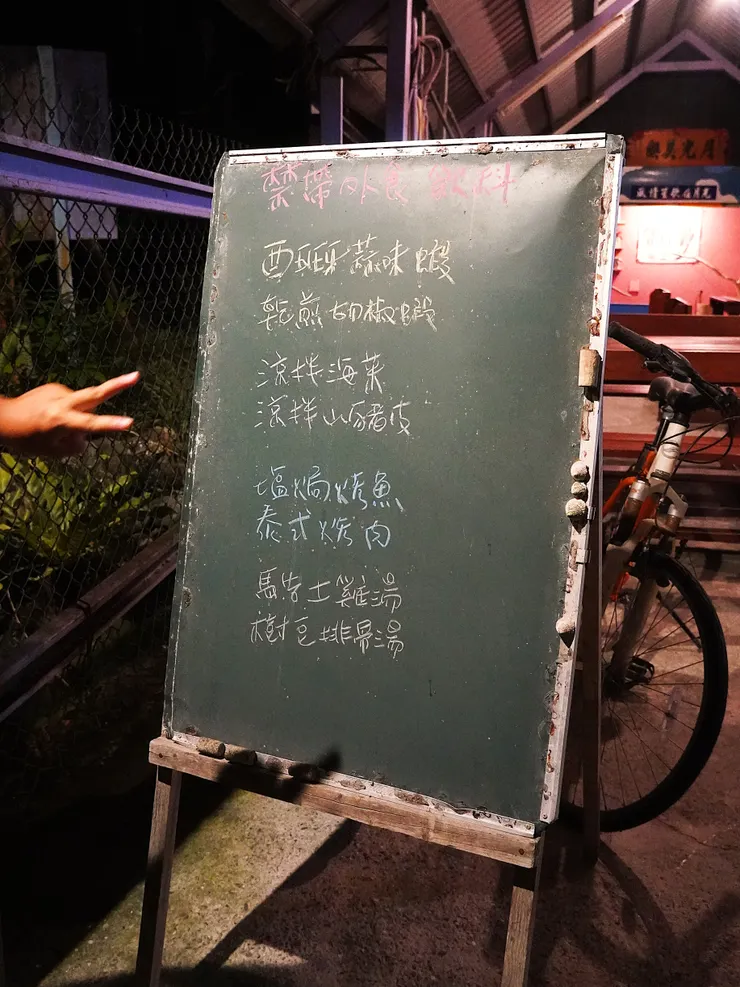 禁攜外食 飲料
西班牙蒜味蝦
乾煎胡椒蝦
涼拌海菜
涼拌山豬皮
塩焗烤魚
泰式烤肉
馬告土雞湯
樹豆排骨湯